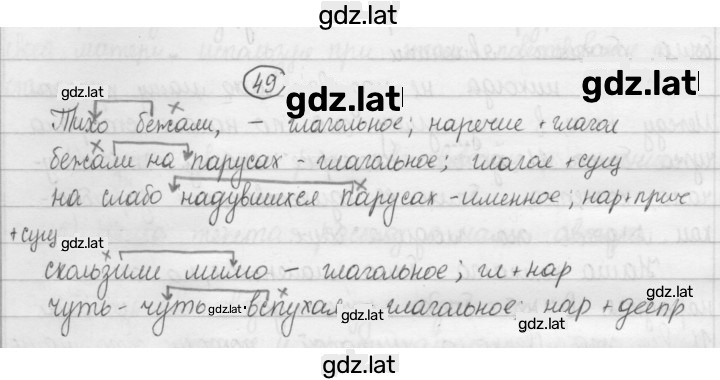 gdz.lat
49
gdz.lat
gdz.lat
gdz.lat
Тихо бежали, - глагольное; наречие + глагол
бежали на парусах - глагольное; глагол + сущ
на слабо надувшихся парусах - именное; нар + прич
+ сущ
gdz.lat
скользили мимо - глагольное; гл + нар
gdz.lat
чуть-чуть вспухая - глагольное нар + деепр
gdz.lat
gdz.lat
gdz.lat
gdz.lat